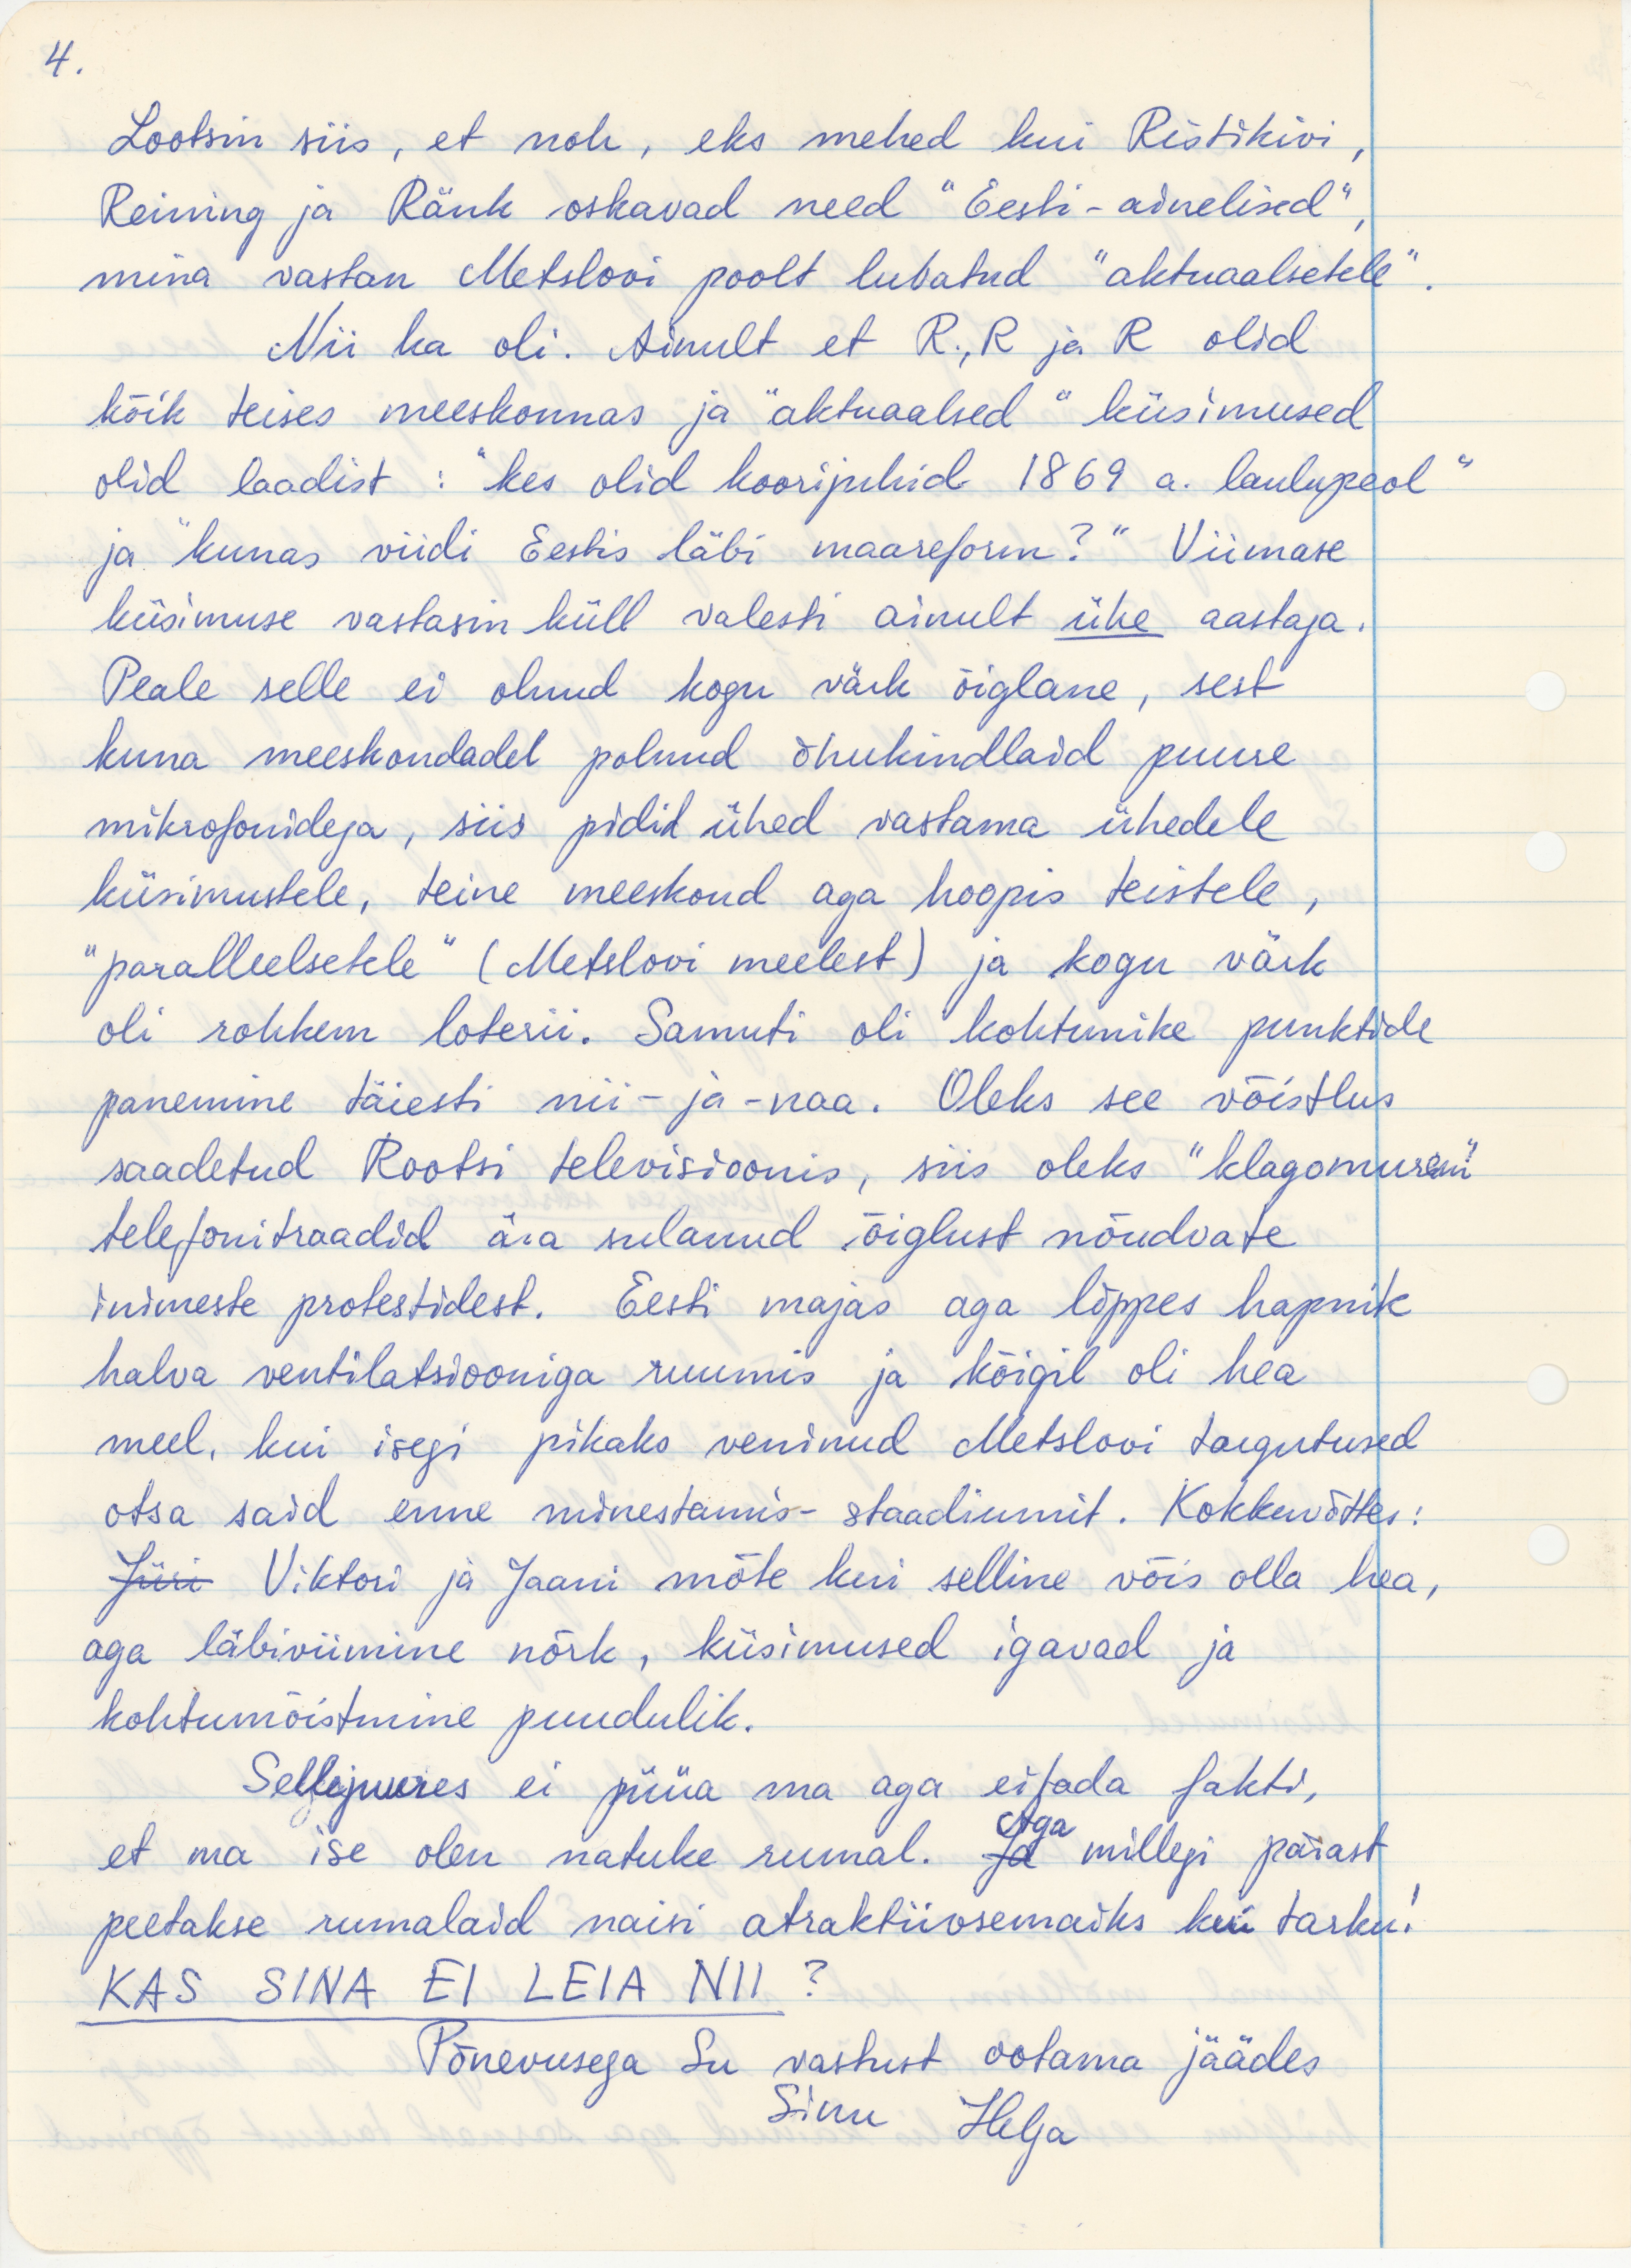 4.
Lootsin siis, et noh, eks mehed kui Ristikivi,
Reining ja Ränk oskavad need "Eesti-ainelised",
mina vastan Metslovi poolt lubatud "aktuaalsetele".
Nii ka oli. Ainult et R., R ja R olid
kõik teises meeskonnas ja "aktuaalsed" küsimused
olid laadist : "kes olid koorijuhid 1869 a. laulupeol"
ja "kunas viidi Eestis läbi maareform?" Viimase
küsimuse vastasin küll valesti ainult ühe aastaga.
Peale selle ei olnud kogu värk õiglane, sest
kuna meeskondadel polnud õhukindlaid puure
mikrofonidega, siis pidid ühed vastama ühedele
küsimustele, teine meeskond aga hoopis teistele,
"paralleelsetele" (Metslovi meelest) ja kogu värk
oli rohkem loterii. Samuti oli kohtunike punktide
panemine täiesti nii-ja-naa. Oleks see võistlus
saadetud Rootsi televisioonis, siis oleks "klagomuren"
telefonitraadid ära sulanud õiglust nõudvate
inimeste protestidest. Eesti majas aga lõppes hapnik
halva ventilatsiooniga ruumis ja kõigil oli hea
meel, kui isegi pikaks veninud Metslovi targutused
otsa said enne minestamis-staadiumit. Kokkuvõttes:
Jüri Viktori ja Jaani mõte kui selline võis olla hea,
aga läbiviimine nõrk, küsimused igavad ja
kohtumõistmine puudulik.
Sellejuures ei püüa ma aga eitada fakti,
et ma ise olen natuke rumal. Ja Aga millegi pärast
peetakse rumalaid naisi atraktiivsemaiks kui tarku!
KAS SINA EI LEIA NII ?
Põnevusega Su vastust ootama jäädes
Sinu Helga